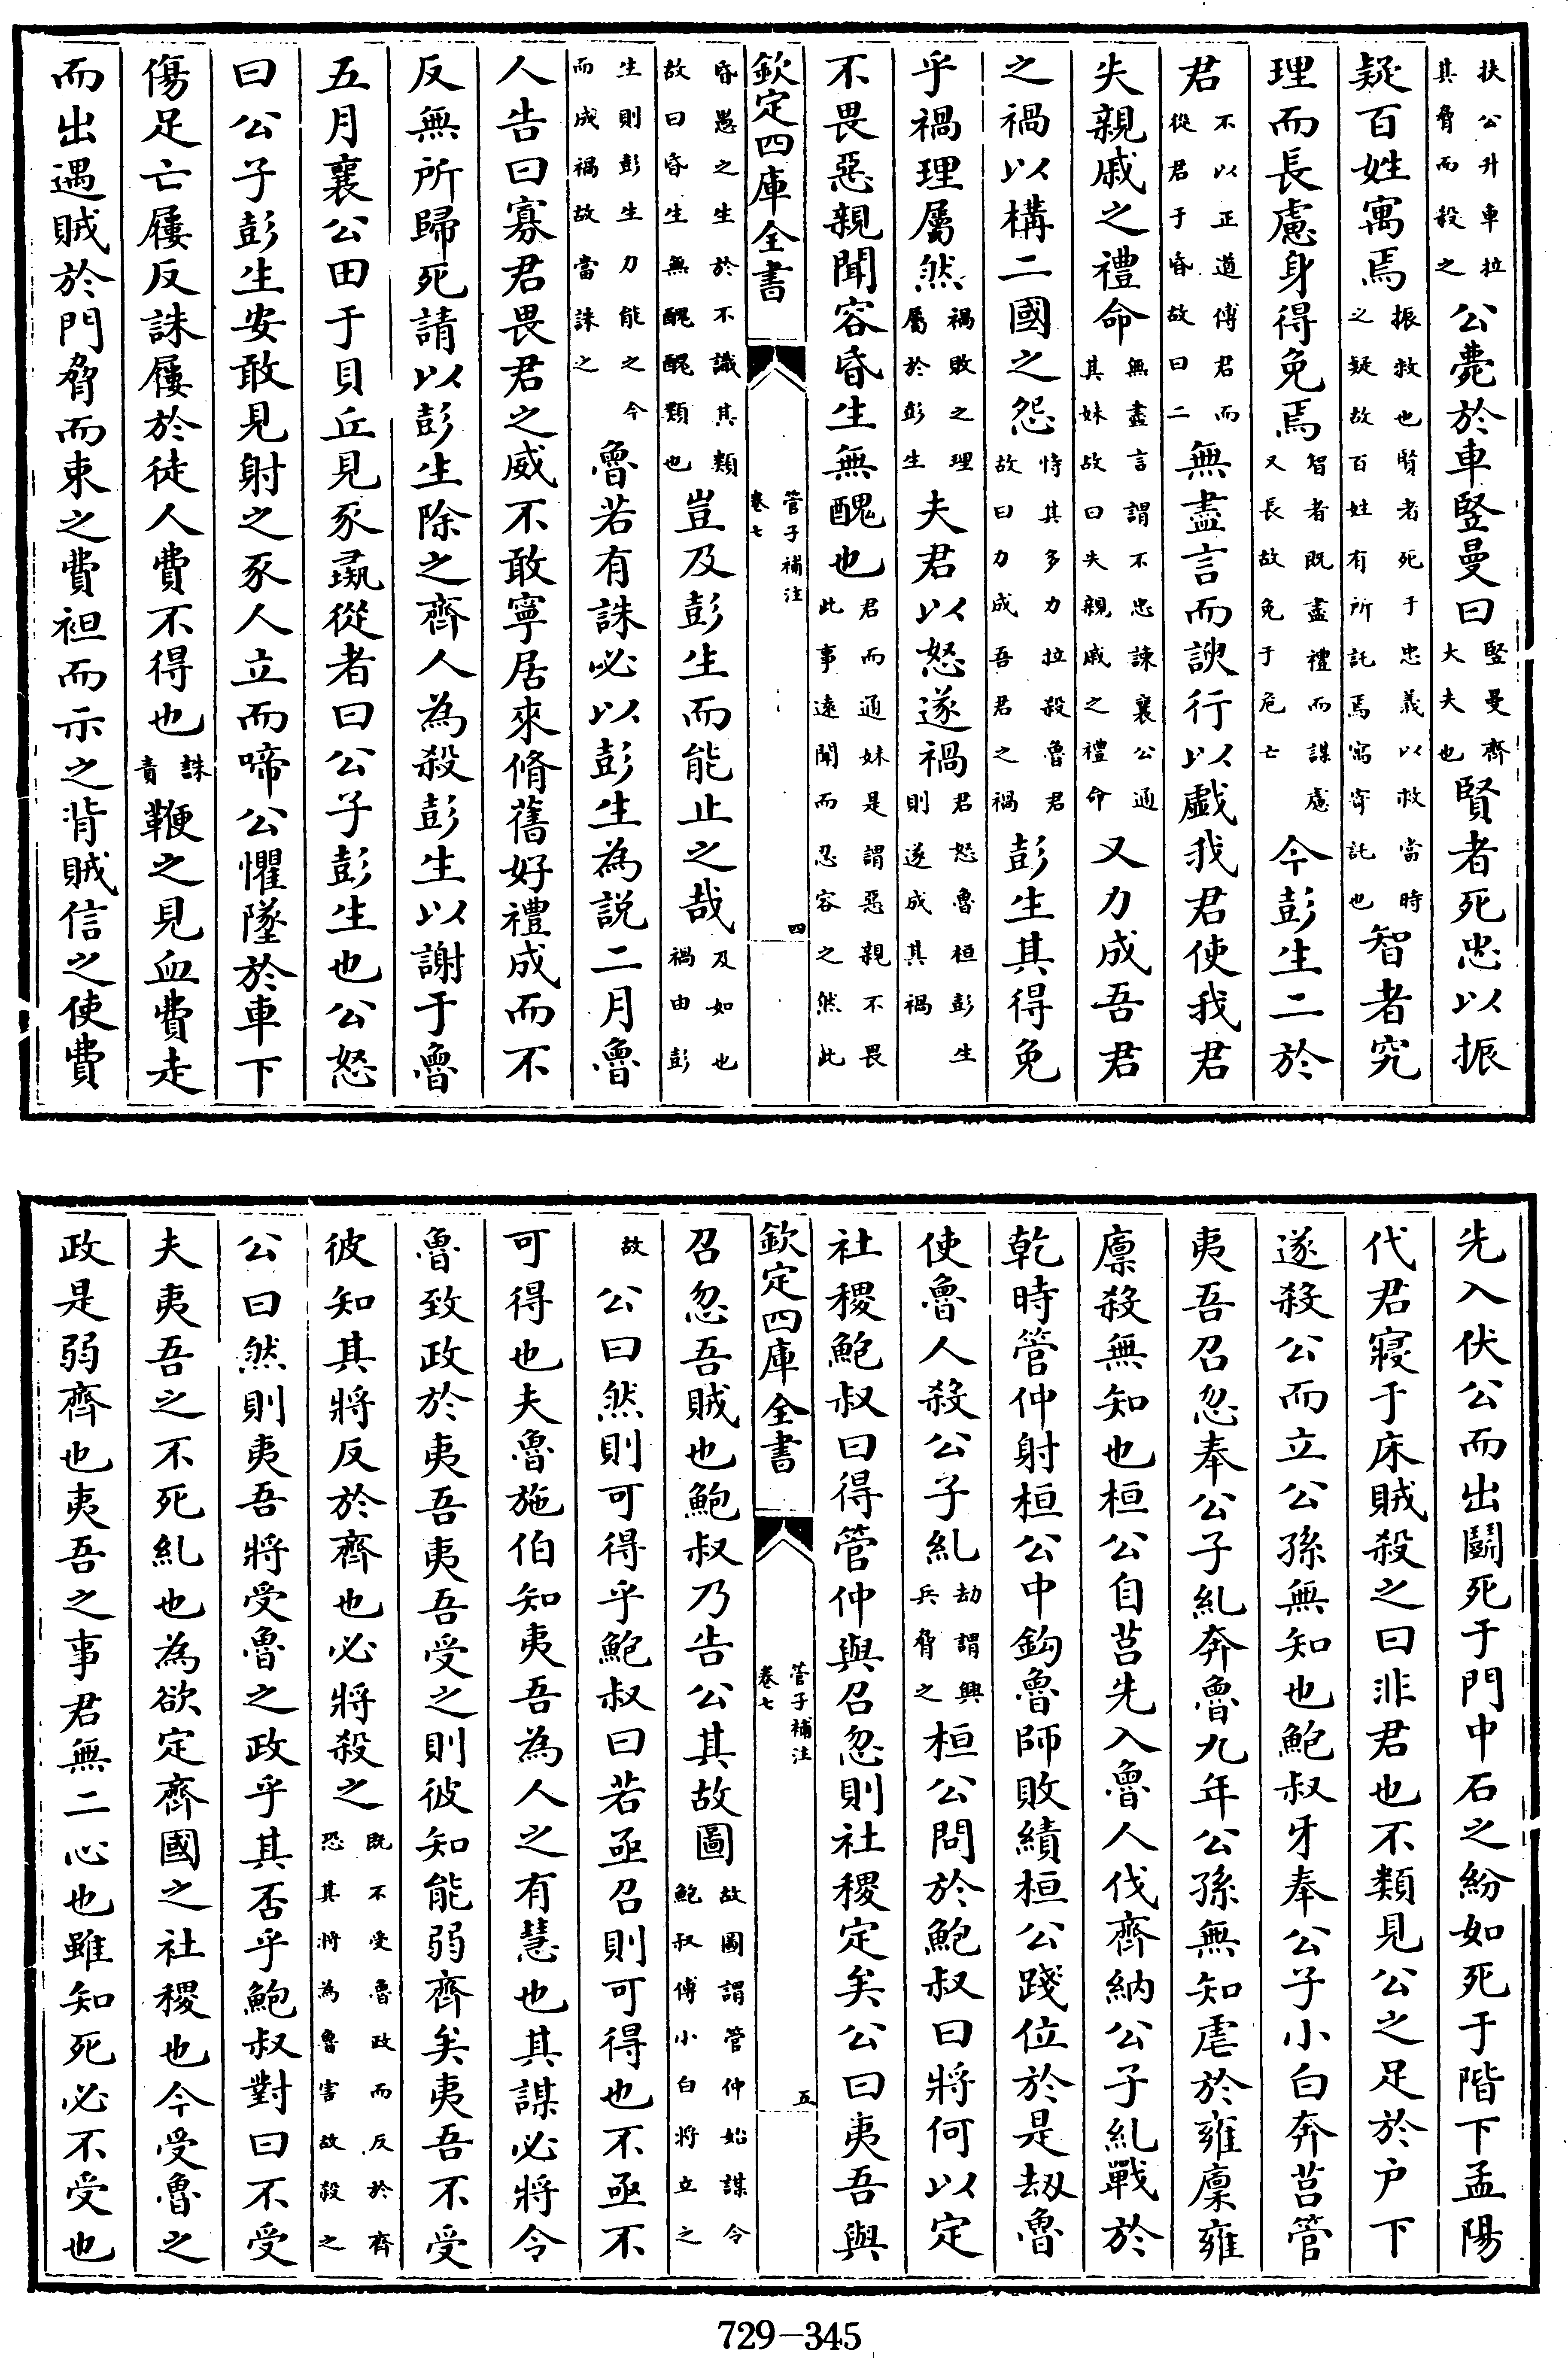 扶公升車拉其脅而殺之公薨於車豎曼曰豎曼齊大夫也賢者死忠以振
疑百姓寓焉振救也賢者死于忠義以救當時之疑故百姓有所託焉寓寄託也智者究
理而長慮身得免焉智者既盡禮而謀慮又長故免于危亡今彭生二於
君不以正道傅君而從君于昏故曰二無盡言而諛行以戲我君使我君
失親戚之禮命無盡言謂不忠諫襄公通其妹故曰失親戚之禮命又力成吾君
之禍以構二國之怨恃其多力拉殺魯君故曰力成吾君之禍彭生其得免
乎禍理屬然禍敗之理屬於彭生夫君以怒遂禍君怒魯桓彭生則遂成其禍
不畏惡親聞容昏生無醜也君而通妹是謂惡親不畏此事遠聞而忍容之然此
欽定四庫全書 管子補注 卷七 四
昏愚之生於不識其類故曰昏生無醜醜類也豈及彭生而能止之哉及如也禍由彭
生則彭生力能之今而成禍故當誅之魯若有誅必以彭生為説二月魯
人告曰寡君畏君之威不敢寧居來脩舊好禮成而不
反無所歸死請以彭生除之齊人為殺彭生以謝于魯
五月襄公田于貝丘見豕彘從者曰公子彭生也公怒
曰公子彭生安敢見射之豕人立而啼公懼墜於車下
傷足亡屨反誅屨於徒人費不得也誅責鞭之見血費走
而出遇賊於門脅而束之費袒而示之背賊信之使費
先入伏公而出鬭死于門中石之紛如死于階下孟陽
代君寢于床賊殺之曰非君也不類見公之足於户下
遂殺公而立公孫無知也鮑叔牙奉公子小白奔莒管
夷吾召忽奉公子糺奔魯九年公孫無知虐於雍廩雍
廩殺無知也桓公自莒先入魯人伐齊納公子糺戰於
乾時管仲射桓公中鈎魯師敗績桓公踐位於是刼魯
使魯人殺公子糺劫謂興兵脅之桓公問於鮑叔曰將何以定
社稷鮑叔曰得管仲與召忽則社稷定矣公曰夷吾與
欽定四庫全書 管子補注 卷七 五
召忽吾賊也鮑叔乃告公其故圖故圖謂管仲始謀令鮑叔傅小白將立之
故公曰然則可得乎鮑叔曰若亟召則可得也不亟不
可得也夫魯施伯知夷吾為人之有慧也其謀必將令
魯致政於夷吾夷吾受之則彼知能弱齊矣夷吾不受
彼知其將反於齊也必將殺之既不受魯政而反於齊恐其將為魯害故殺之
公曰然則夷吾將受魯之政乎其否乎鮑叔對曰不受
夫夷吾之不死糺也為欲定齊國之社稷也今受魯之
政是弱齊也夷吾之事君無二心也雖知死必不受也
729-345